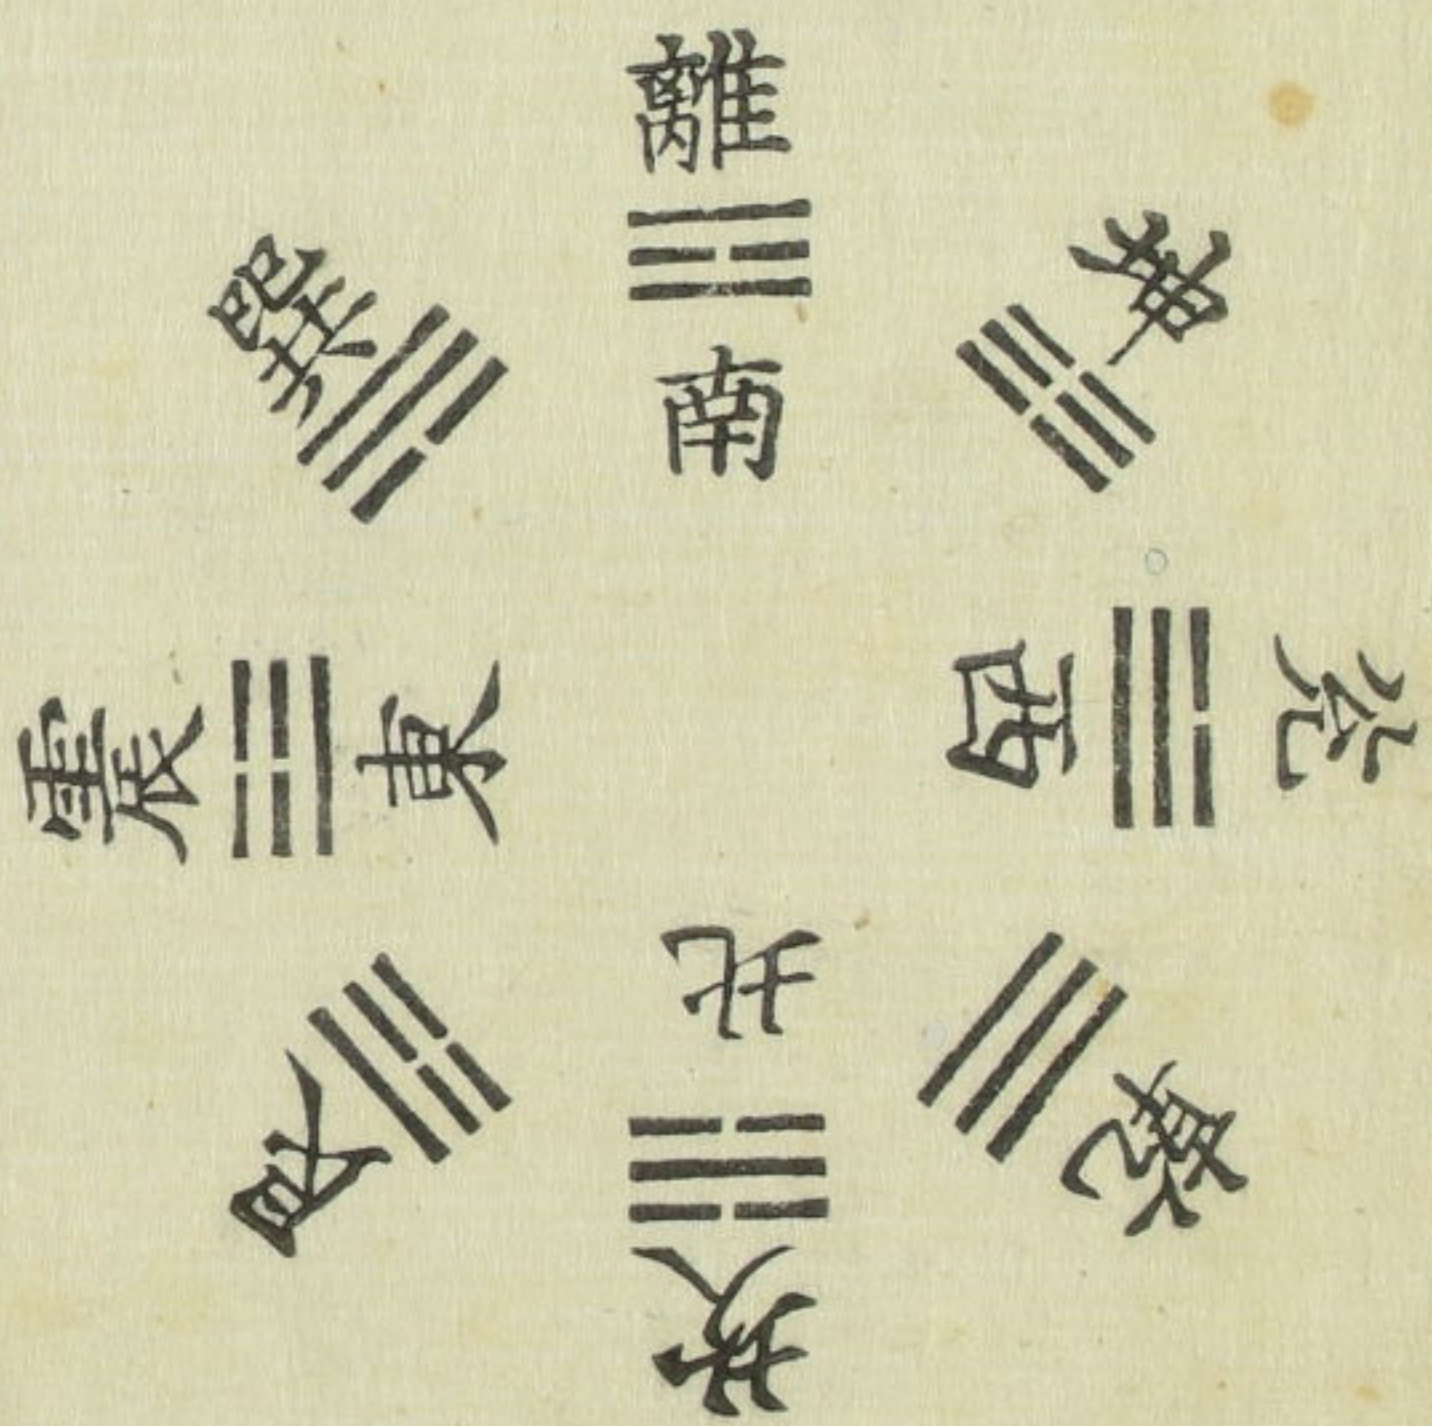 離
南
坤
兌
西
乾
坎
北
艮
震
東
巽